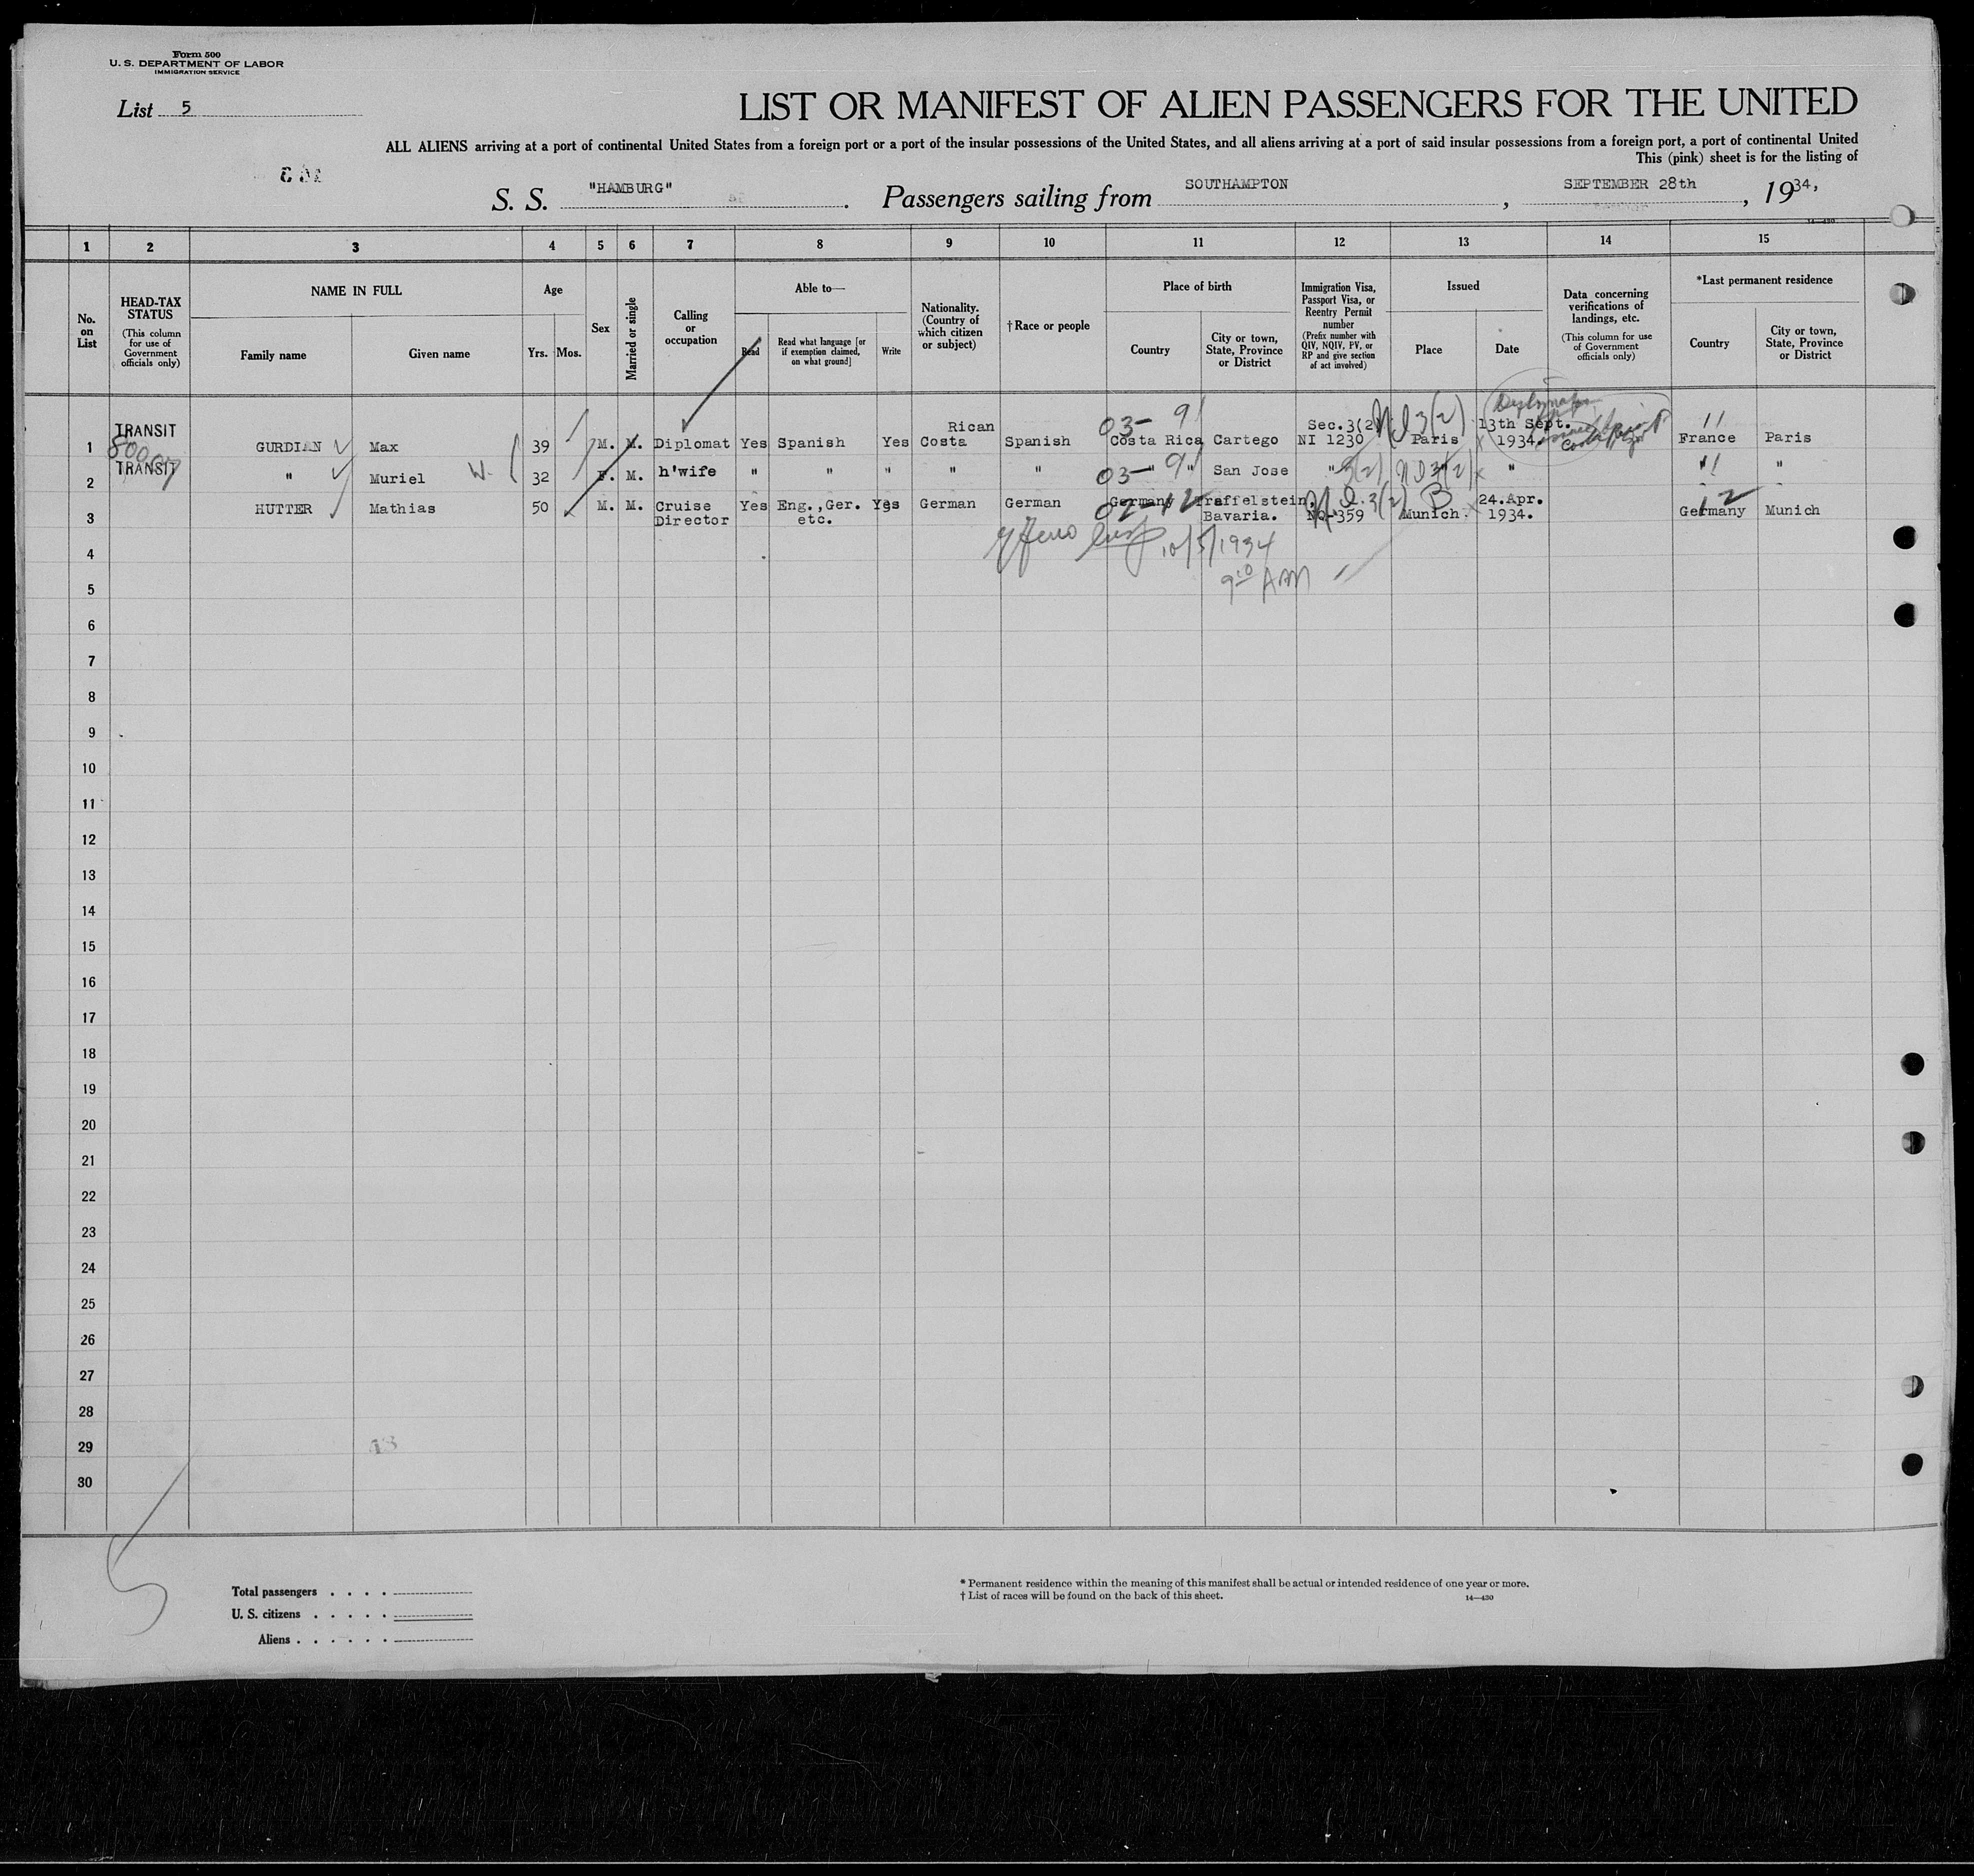 Form 500
U. S. DEPARTMENT OF LABOR
IMMIGRATION SERVICE
List 5
LIST OR MANIFEST OF ALIEN PASSENGERS FOR THE UNITED
ALL ALIENS arriving at a port of continental United States from a foreign port or a port of the insular possessions of the United States, and all aliens arriving at a port of said insular possessions from a foreign port, a port of continental United
This (pink) sheet is for the listing of
S. S. "HAMBURG" . Passengers sailing from SOUTHAMPTON , SEPTEMBER 28th , 1934,
14—430
1 2 3 4 5 6 7 8 9 10 11 12 13 14 15
No. on List
HEAD-TAX STATUS (This column for use of Government officials only)
NAME IN FULL
Family name
Given name
Age
Yrs. Mos.
Sex
Married or single
Calling or occupation
Able to—
Read
Read what language [or if exemption claimed, on what ground]
Write
Nationality. (Country of which citizen or subject)
†Race or people
Place of birth
Country
City or town, State, Province or District
Immigration Visa, Passport Visa, or Reentry Permit number (Prefix number with QIV, NQIV, PV, or RP and give section of act involved)
Issued
Place
Date
Data concerning verifications of landings, etc. (This column for use of Government officials only)
*Last permanent residence
Country
City or town, State, Province or District
03- 91
Rican Sec.3(2) 3(2) 13th Sept. 11
1 TRANSIT GURDIAN Max 39 M. M. Diplomat Yes Spanish Yes Costa Spanish Costa Rica Cartego NI 1230 Paris 1934. France Paris
2 TRANSIT " Muriel W. 32 F. M. h'wife " " " " " 03- " 91 " San Jose " 3(2) 3(2) " " "
3 HUTTER Mathias 50 M. M. Cruise Director Yes Eng.,Ger. etc. Yes German German Germany Treffelstein, Bavaria. No.359 3(2) Munich. B 24.Apr. 1934. Germany Munich
02-12 12
10/5/1934
9:10 AM
4
5
6
7
8
9
10
11
12
13
14
15
16
17
18
19
20
21
22
23
24
25
26
27
28
29
30
Total passengers . . . .
U. S. citizens . . . . .
Aliens . . . . . .
* Permanent residence within the meaning of this manifest shall be actual or intended residence of one year or more.
† List of races will be found on the back of this sheet.
14—430